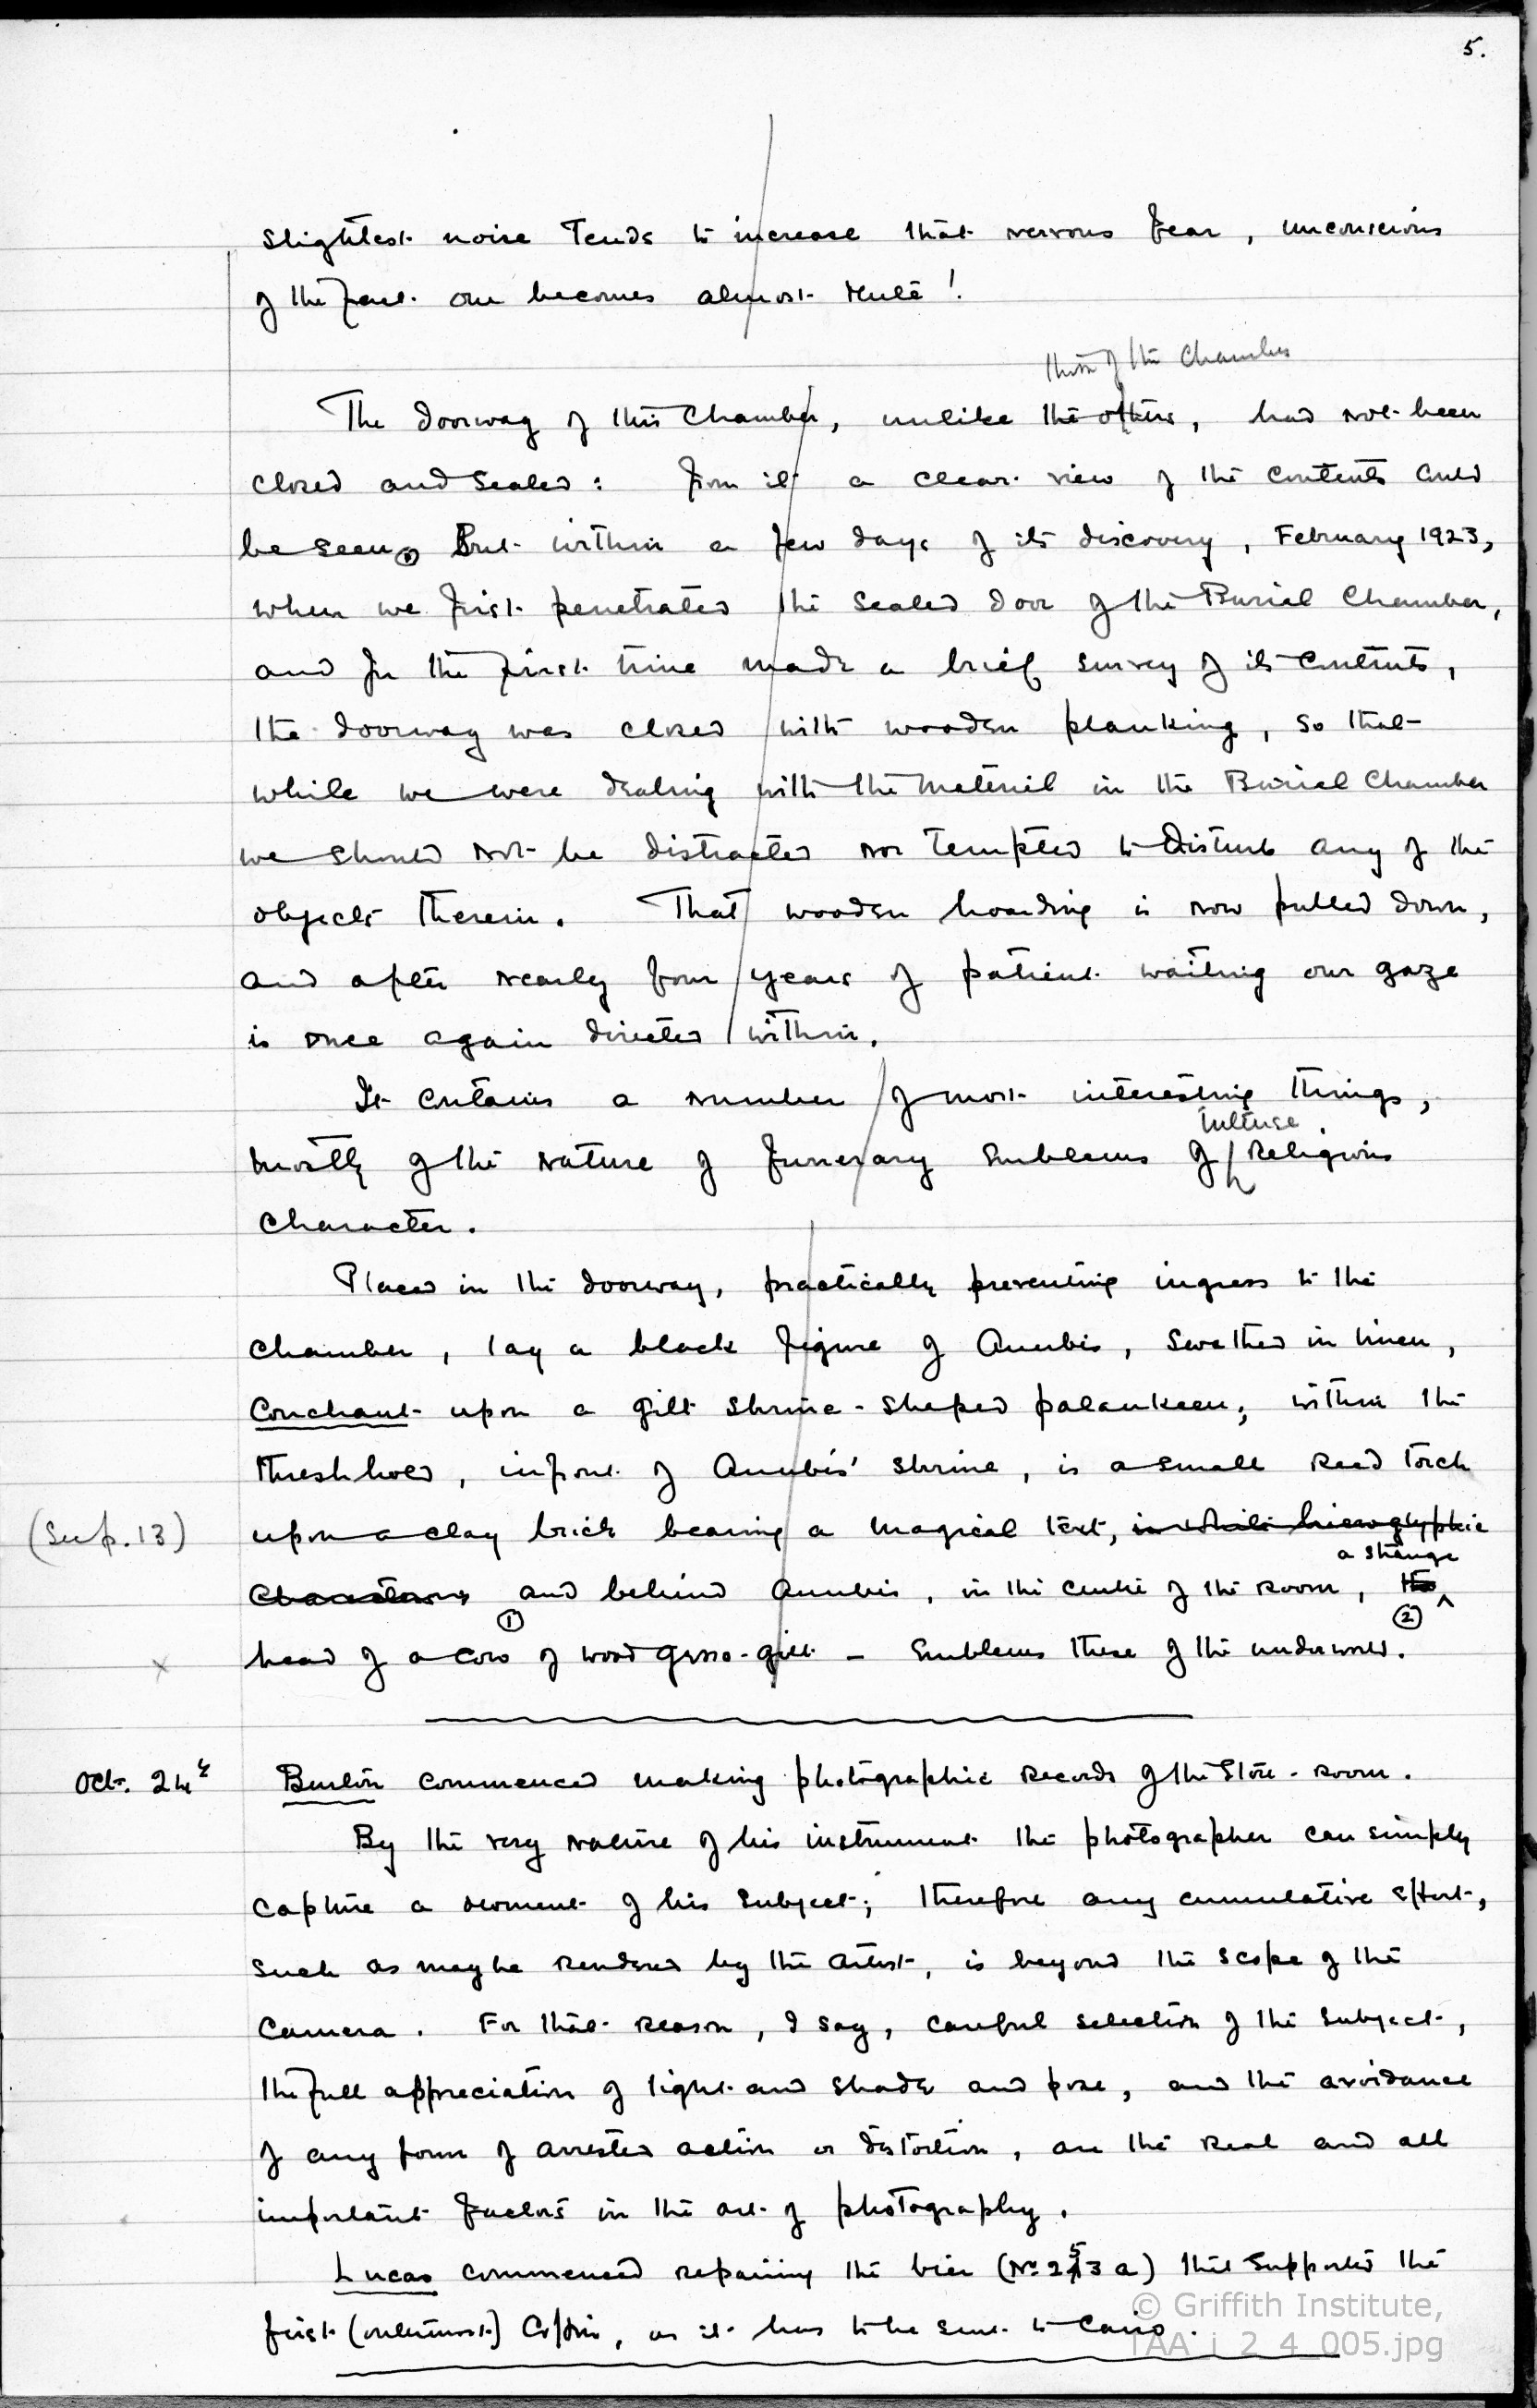 5.
slightest noise tends to increase that nervous fear, unconscious
of the fact one becomes almost mute!
those of the Chambers
The doorway of this Chamber, unlike the others, had not been
closed and sealed: from it a clear view of the contents could
be seen. But within a few days of its discovery, February 1923,
when we first penetrated the sealed door of the Burial Chamber,
and for the first time made a brief survey of its contents,
the doorway was closed with wooden planking, so that
while we were dealing with the material in the Burial Chamber
we should not be distracted nor tempted to disturb any of the
objects therein. That wooden boarding is now pulled down,
and after nearly four years of patient waiting our gaze
is once again directed within.
It contains a number of most interesting things,
intense
mostly of the nature of funerary emblems of religious
character.
Placed in the doorway, practically preventing ingress to the
chamber, lay a black figure of Anubis, swathed in linen,
couchant upon a gilt shrine-shaped palankeen; within the
threshhold, infront of Anubis' shrine, is a small reed torch
(Sup. 13) upon a clay brick bearing a magical text, in white hieroglyphic
a strange
characters and behind Anubis, in the centre of the room, the
① ②
x head of a cow of wood gesso-gilt – emblems these of the underworld.
Oct. 24th Burton commenced making photographic records of the Store-room.
By the very nature of his instrument the photographer can simply
capture a moment of his subject; therefore any cumulative effort,
such as may be rendered by the artist, is beyond the scope of the
camera. For that reason, I say, careful selection of the subject,
the full appreciation of light and shade and pose, and the avoidance
of any form of arrested action or distortion, are the real and all
important factors in the art of photography.
Lucas commenced repairing the bier (No. 253 a) that supported the
first (outermost) Coffin, as it has to be sent to Cairo.
© Griffith Institute,
TAA_i_2_4_005.jpg